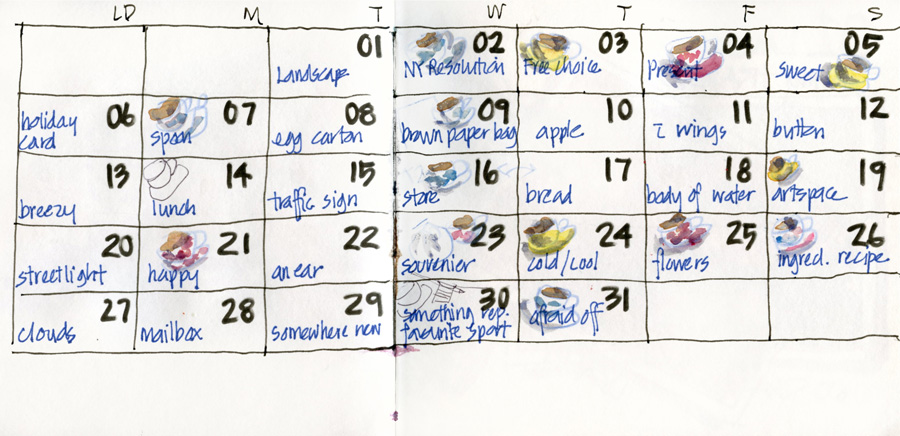 LD M T W T F S
01
Landscape
02
NY Resolution
03
Free choice
04
Present
05
Sweet
06
holiday
card
07
spoon
08
egg carton
09
brown paper bag
10
apple
11
wings
12
button
13
breezy
14
lunch
15
traffic sign
16
store
17
bread
18
body of water
19
artspace
20
streetlight
21
happy
22
an ear
23
souvenier
24
cold/cool
25
flowers
26
ingred. recipe
27
clouds
28
mailbox
29
somewhere new
30
something rep.
favourite sport
31
afraid of